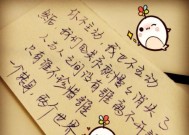 你不主动 我也不主动
我们回来慢慢的消失了
人与人之间没有谁离不开谁
只有谁不珍惜谁
一个转身 两个世界